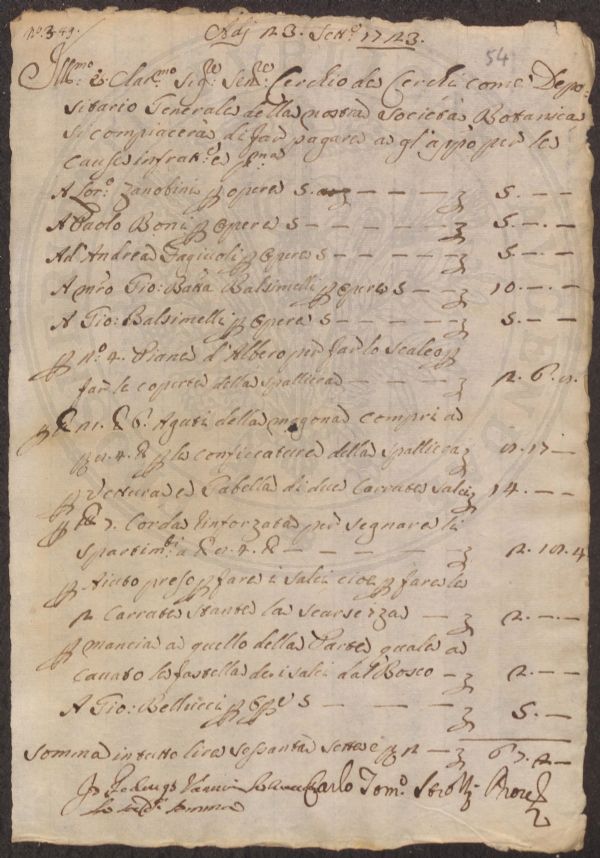 n.o 349.
Adj 23. Sett.e 1723.
54
Ill.mo e Clar.mo Sig.re Sen.re Cerchio de Cerchi come Depo-
sitario Generale della nostra Società Botanica
si compiacerà di far pagare a gl'app.o per le
cause infratt.e
A Lor.o Zanobini p opere 5. — 5. — —
A Paolo Boni p opere 5 — 5. — —
Ad'Andrea Fagiuoli p opere 5 — 5. — —
A m.ro Gio: Batta Balsimelli p opere 5 — 10. — —
A Gio: Balsimelli p opere 5 — 5. — —
p n.o 4. Piane d'Albero per far lo scaleo p
far le coperte della spalliera — 2. 6.
Aguti della magona compri a
p le conficcature della spalliera 17 —
p Vettura e Gabella di due Carrate salci 14. — —
7. Corda rinforzata per segnare li
spartim.ti a — 2. 4
p Aiuto preso p fare i salci cioè p fare le
2 Carrate stante la scarsezza — 2. — —
p mancia a quello della Parte quale a
cavato le fastella de i salci dal Bosco — 2. — —
A Gio: Bellucci p op.e 5 — 5. —
Somma in tutto lire sessanta sette e 2 — 67. 2 —
Carlo Tom.o Strozzi Prov.e
somma